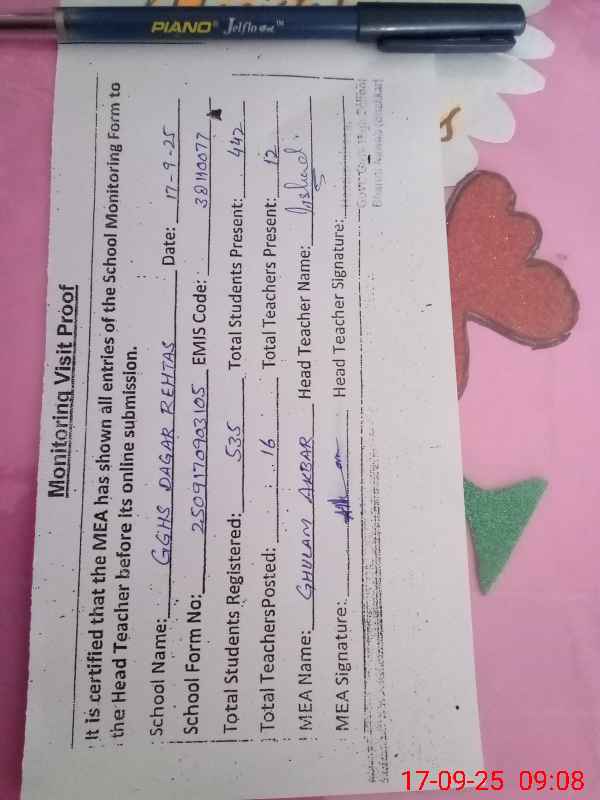 PIANO® Jelflo Gel™
Monitoring Visit Proof
It is certified that the MEA has shown all entries of the School Monitoring Form to
the Head Teacher before its online submission.
School Name: GGHS DAGAR REHTAS Date: 17-9-25
School Form No: 2509170903105 EMIS Code: 38110077
Total Students Registered: 535 Total Students Present: 442
Total TeachersPosted: 16 Total Teachers Present: 12
MEA Name: GHULAM AKBAR Head Teacher Name:
MEA Signature: Head Teacher Signature:
17-09-25 09:08